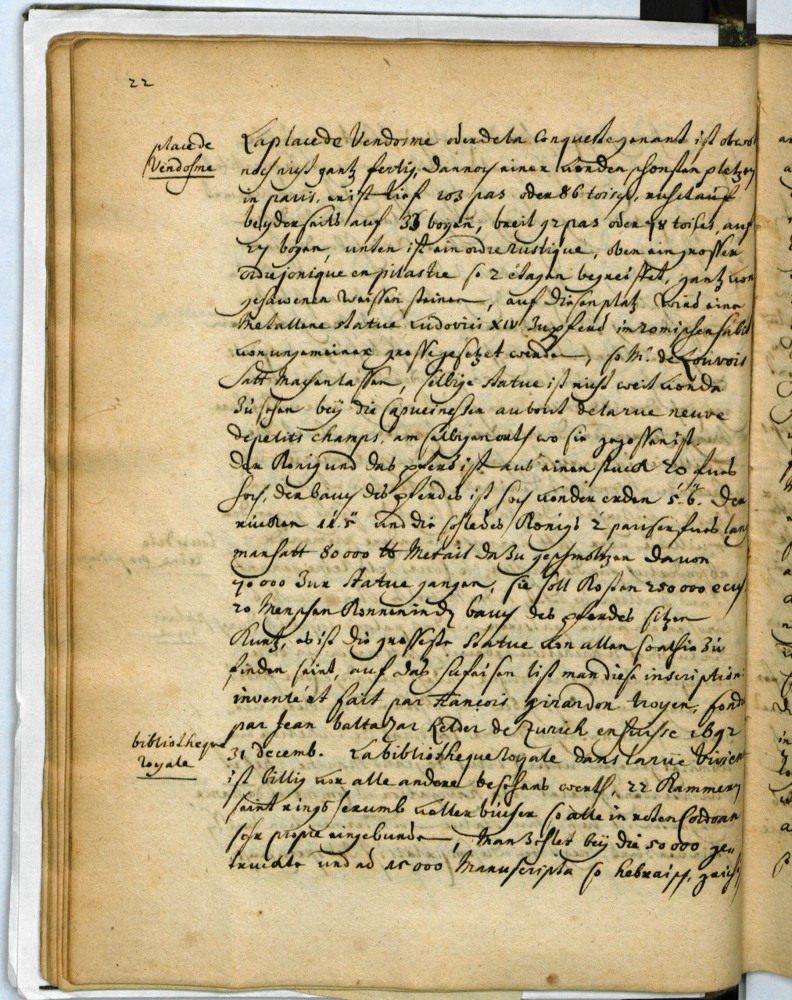 22
place de
Vendosme
La place de Vendosme oder de la Conqueste genant ist obwol
noch nicht gantz fertig, dannoch einer von den schonsten pletzen
in paris, er ist tief 103 pas oder 86 toises, ruhet auf
beyder seits auf 33 bogen, breit 92 pas oder 78 toises, auf
27 bogen, unten ist ein ordre rustique, oben ein grosser
ordre jonique en pilastre so 2 etagen begreiffet, gantz von
gehawenen weissen steinen, auf diesen platz wird eine
Metallene statue Ludovici XIV zu pferd im romischen habit
von ungemeiner grosse gesetzet werden, so Mr. de Louvois
hatt machen lassen, selbige statue ist nicht weit von da
zu sehen bey die Capucinessen au bout de la rue neuve
de petits champs, am selbigen orth wo sie gegossen ist.
der Konig und das pferd ist aus einen stuck 20 fues
hoch, der bauch des pferdes ist hoch von der erden 5. 6. der
rucken 11. 5 und die sohle des Konigs 2 pariser fues lang
man hatt 80000 lb Metail dazu geschmoltzen davon
70000 zur statue gangen, sie soll kosten 250000 ecus
20 Menschen konnen in den bauch des pferdes sitzen
kurtz, es ist die grosseste statue von allen so alhie zu
finden seint, auf das hufeisen list man diese inscription:
inventé et fait par francois girardon troyen, fondu
par Jean baltazar Keller de Zurich en suisse 1692
bibliotheque
royale
31 decemb. La bibliotheque royale dans la rue Vivien
ist billig vor alle andere besehens werth, 22 Kammern
seint rings herumb voller bucher so alle in roten Cordoan
sehr propre eingebunden, Man zehlet bey die 50000 ge-
truckte und ad 15000 Manuscripta so hebraisch, griech